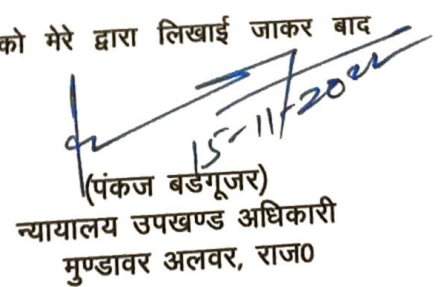 को मेरे द्वारा लिखाई जाकर बाद
15-11-2022
(पंकज बडगूजर)
न्यायालय उपखण्ड अधिकारी
मुण्डावर अलवर, राज0